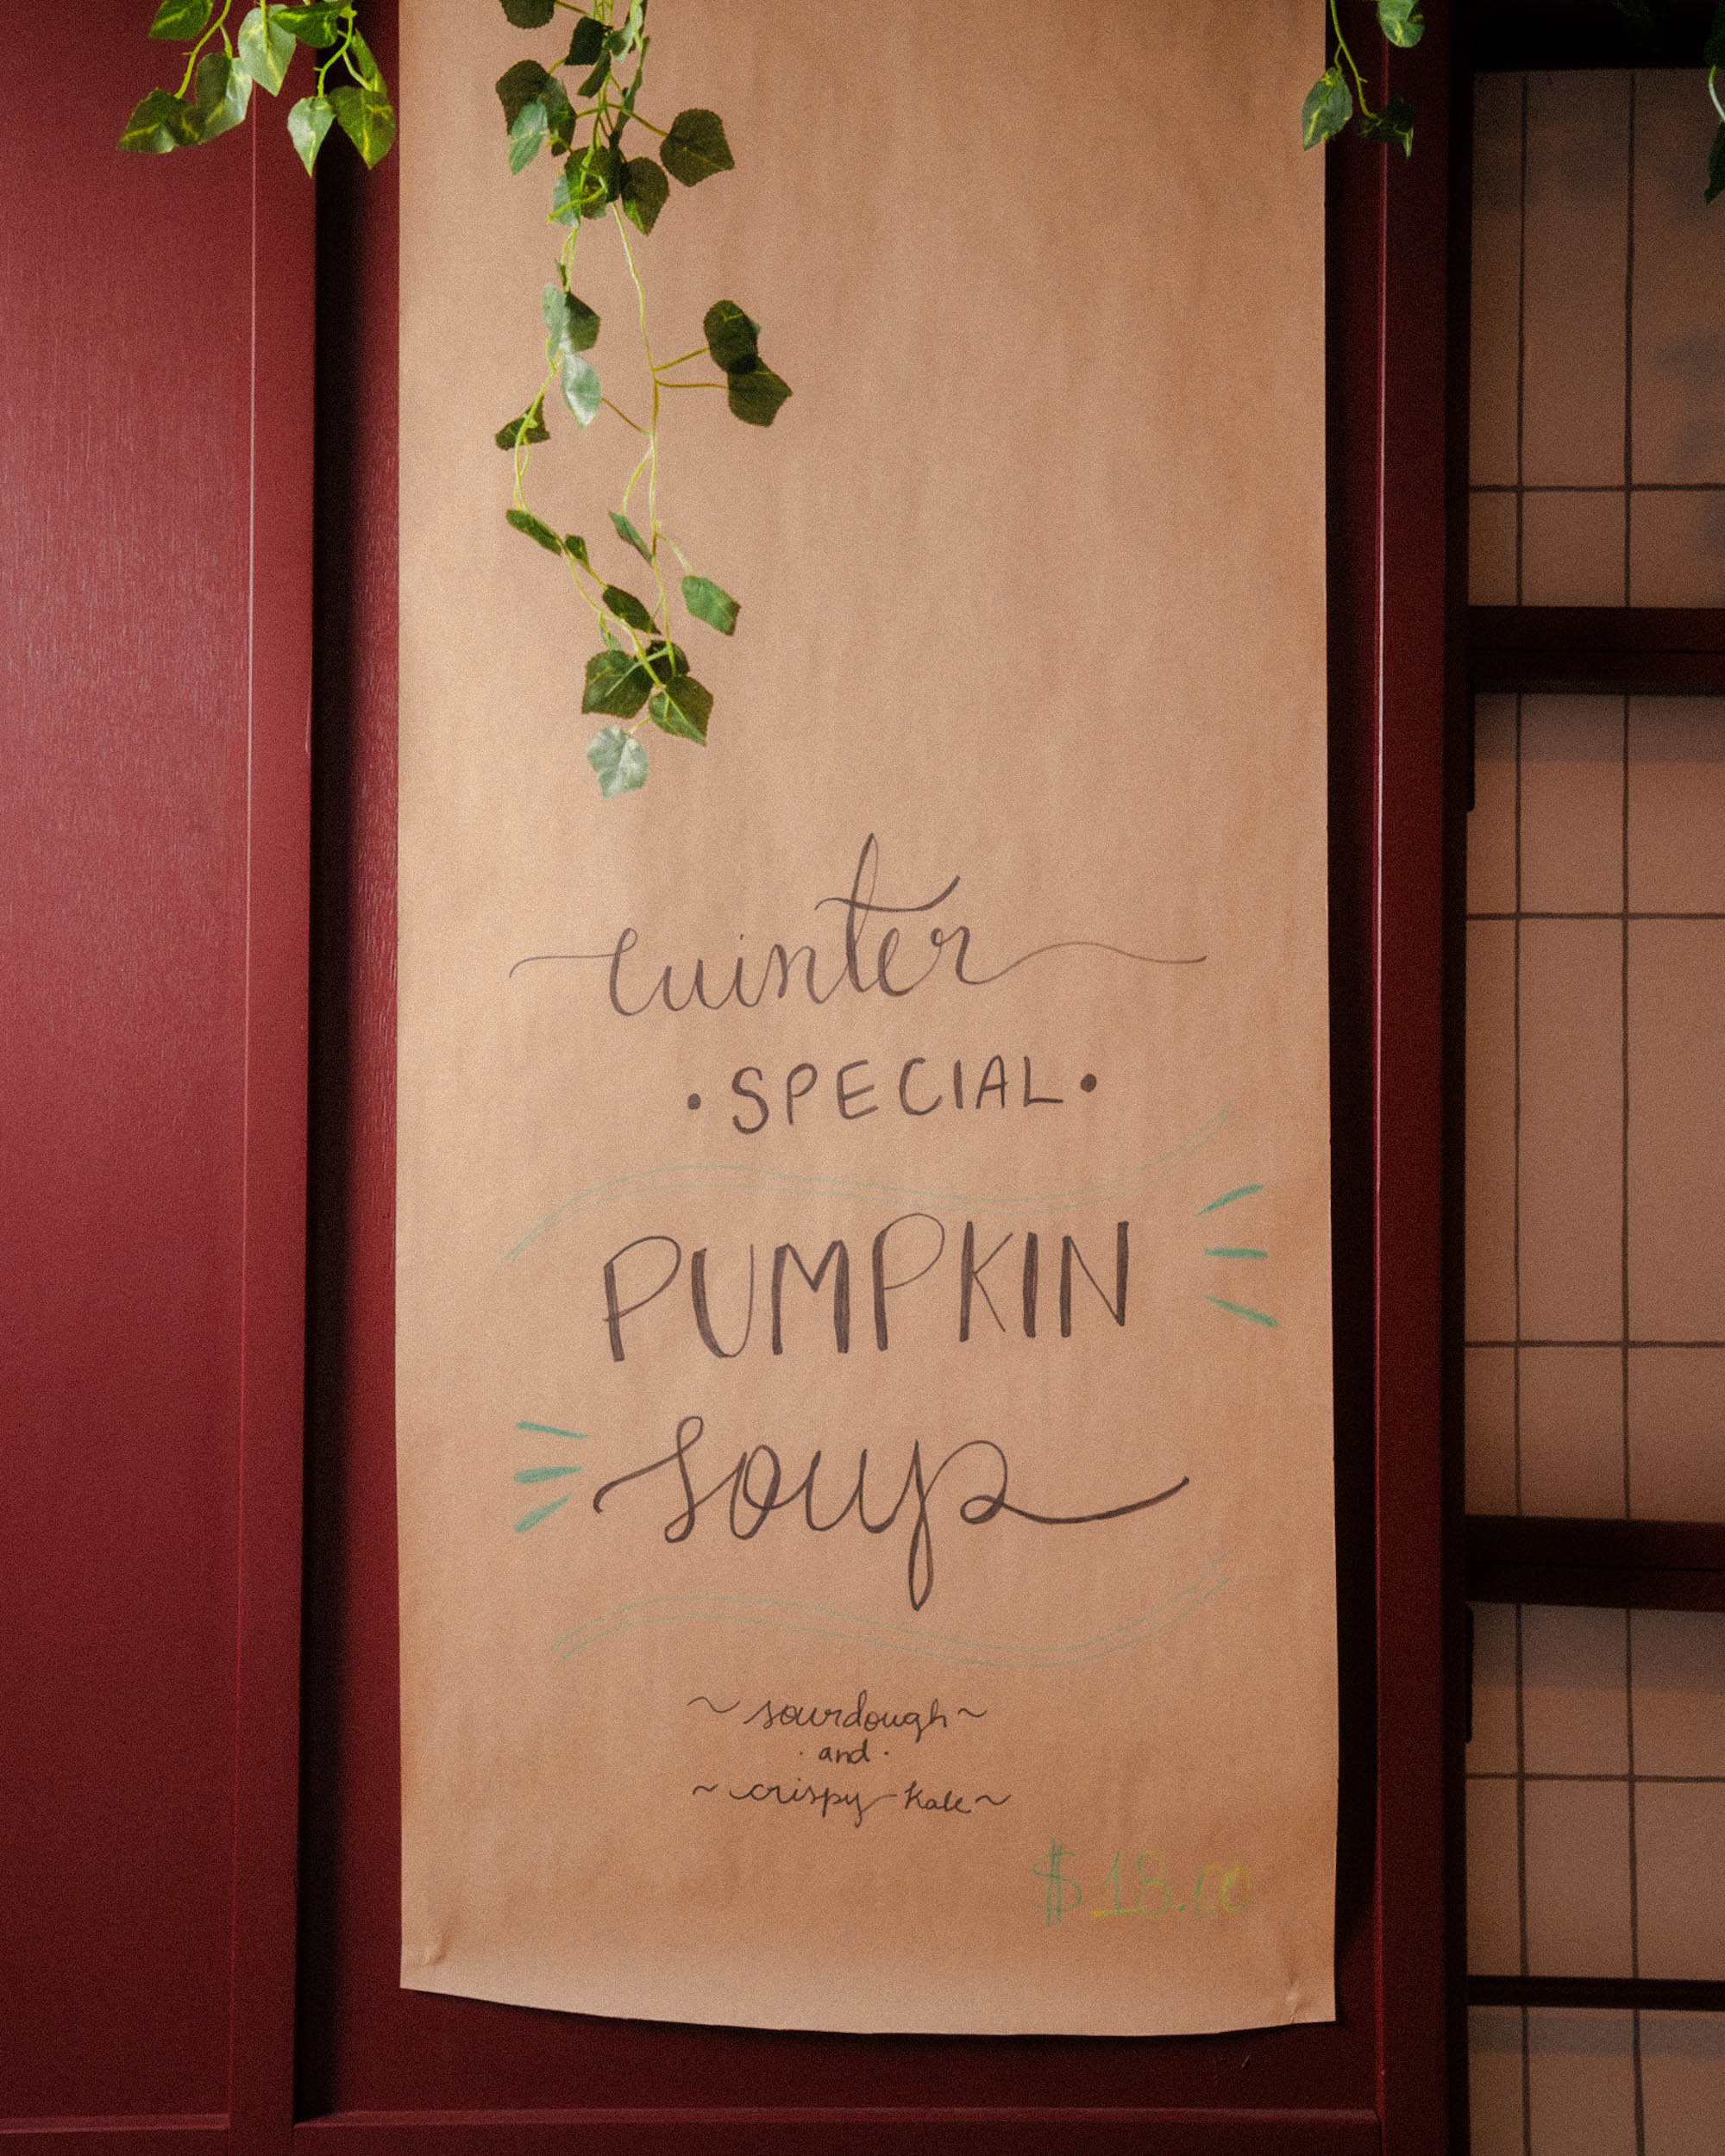 winter
• SPECIAL •
PUMPKIN
soup
~ sourdough ~
· and ·
~ crispy kale ~
$18.00